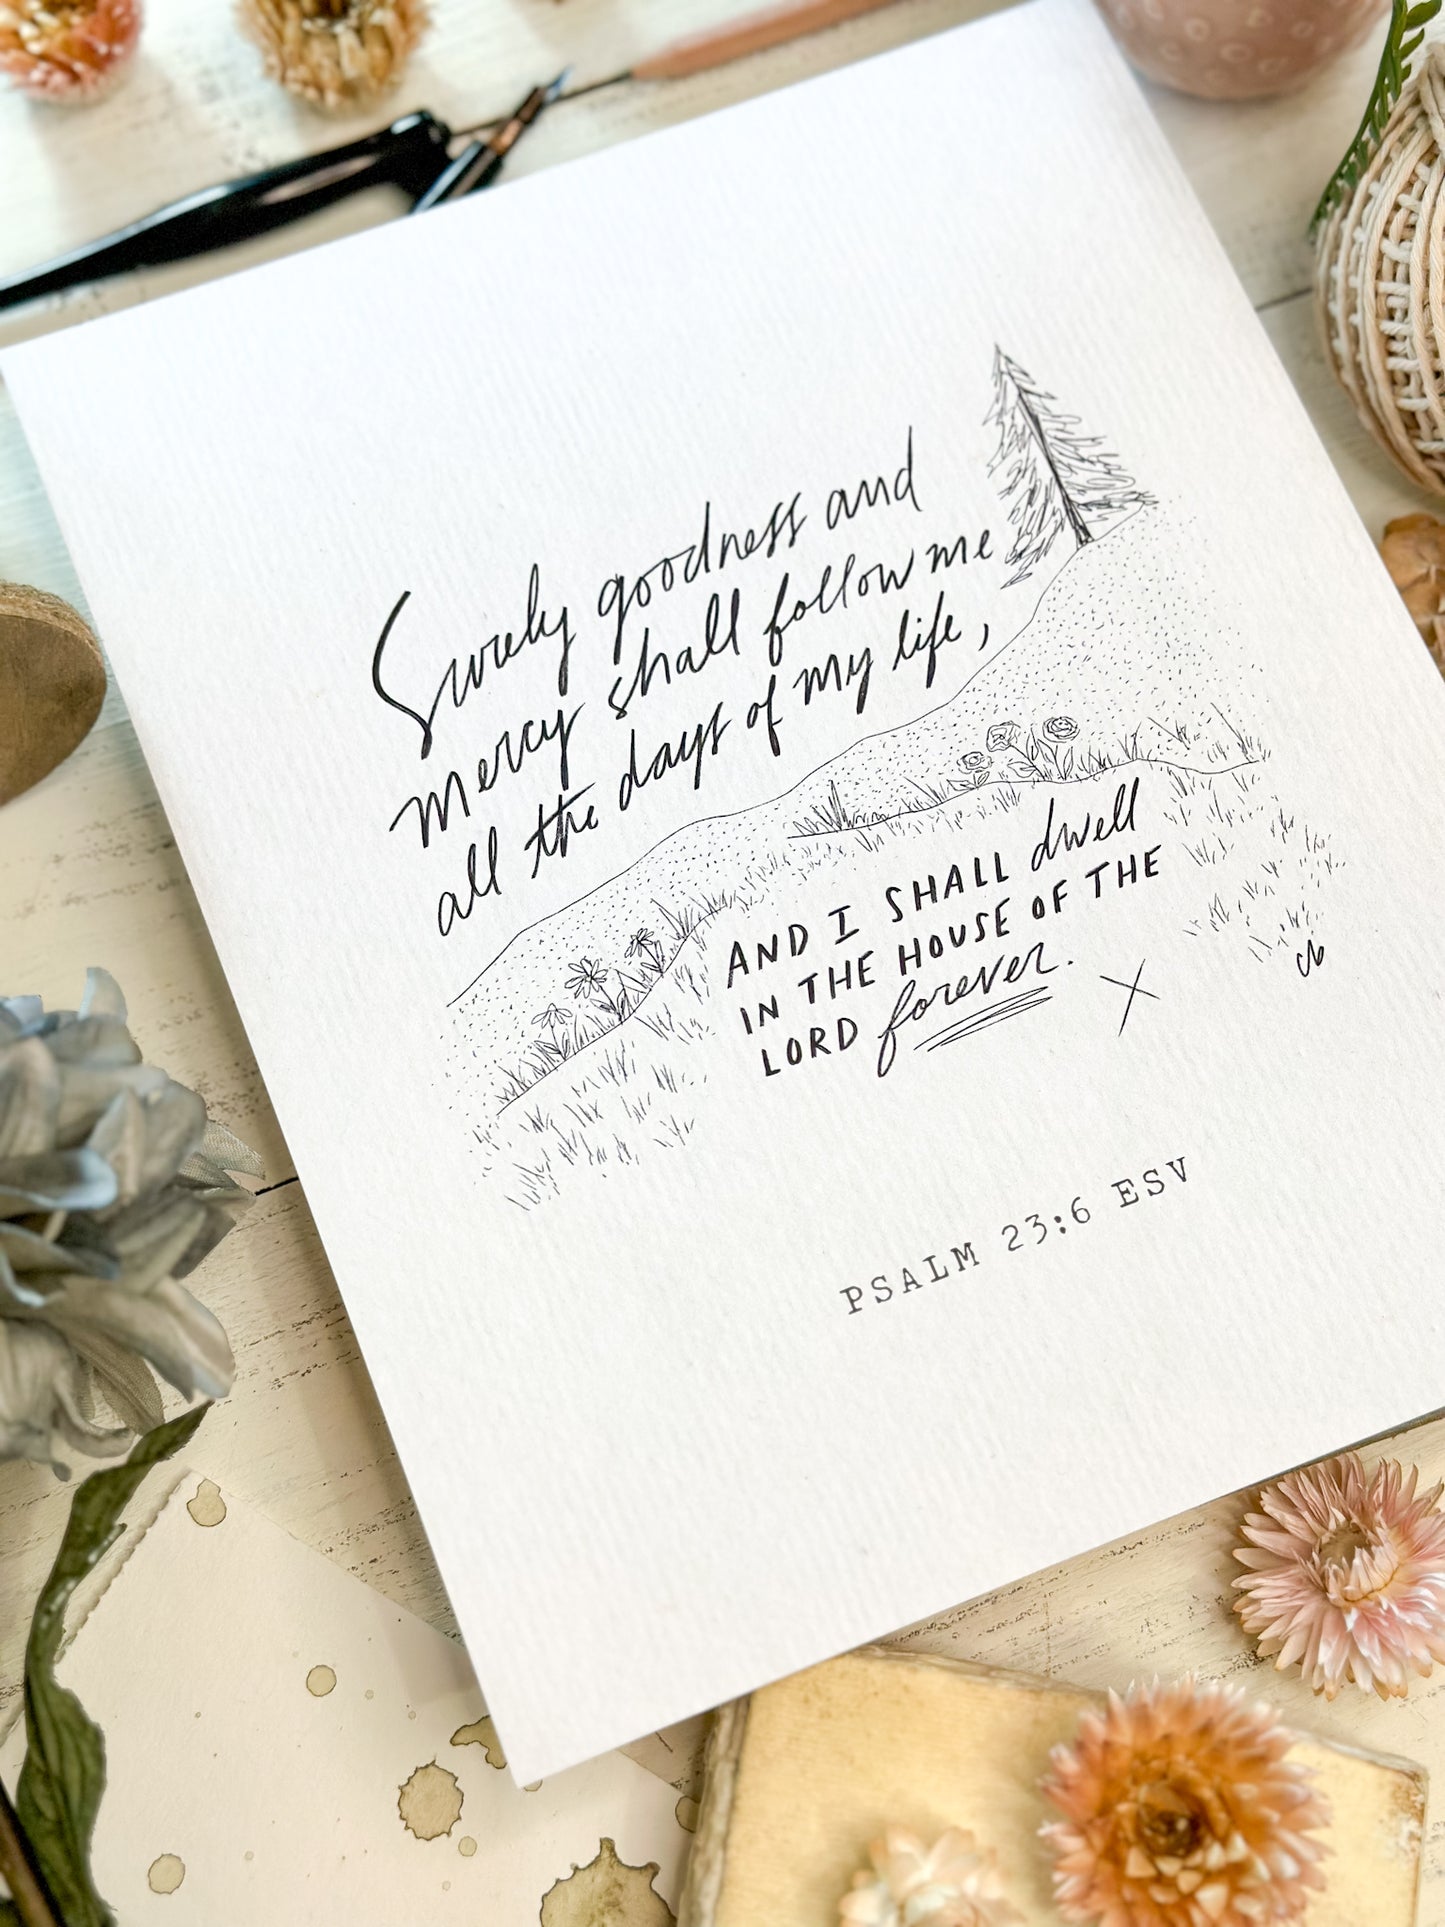 Surely goodness and
mercy shall follow me
all the days of my life,
AND I SHALL dwell
IN THE HOUSE OF THE
LORD forever.
cb
PSALM 23:6 ESV